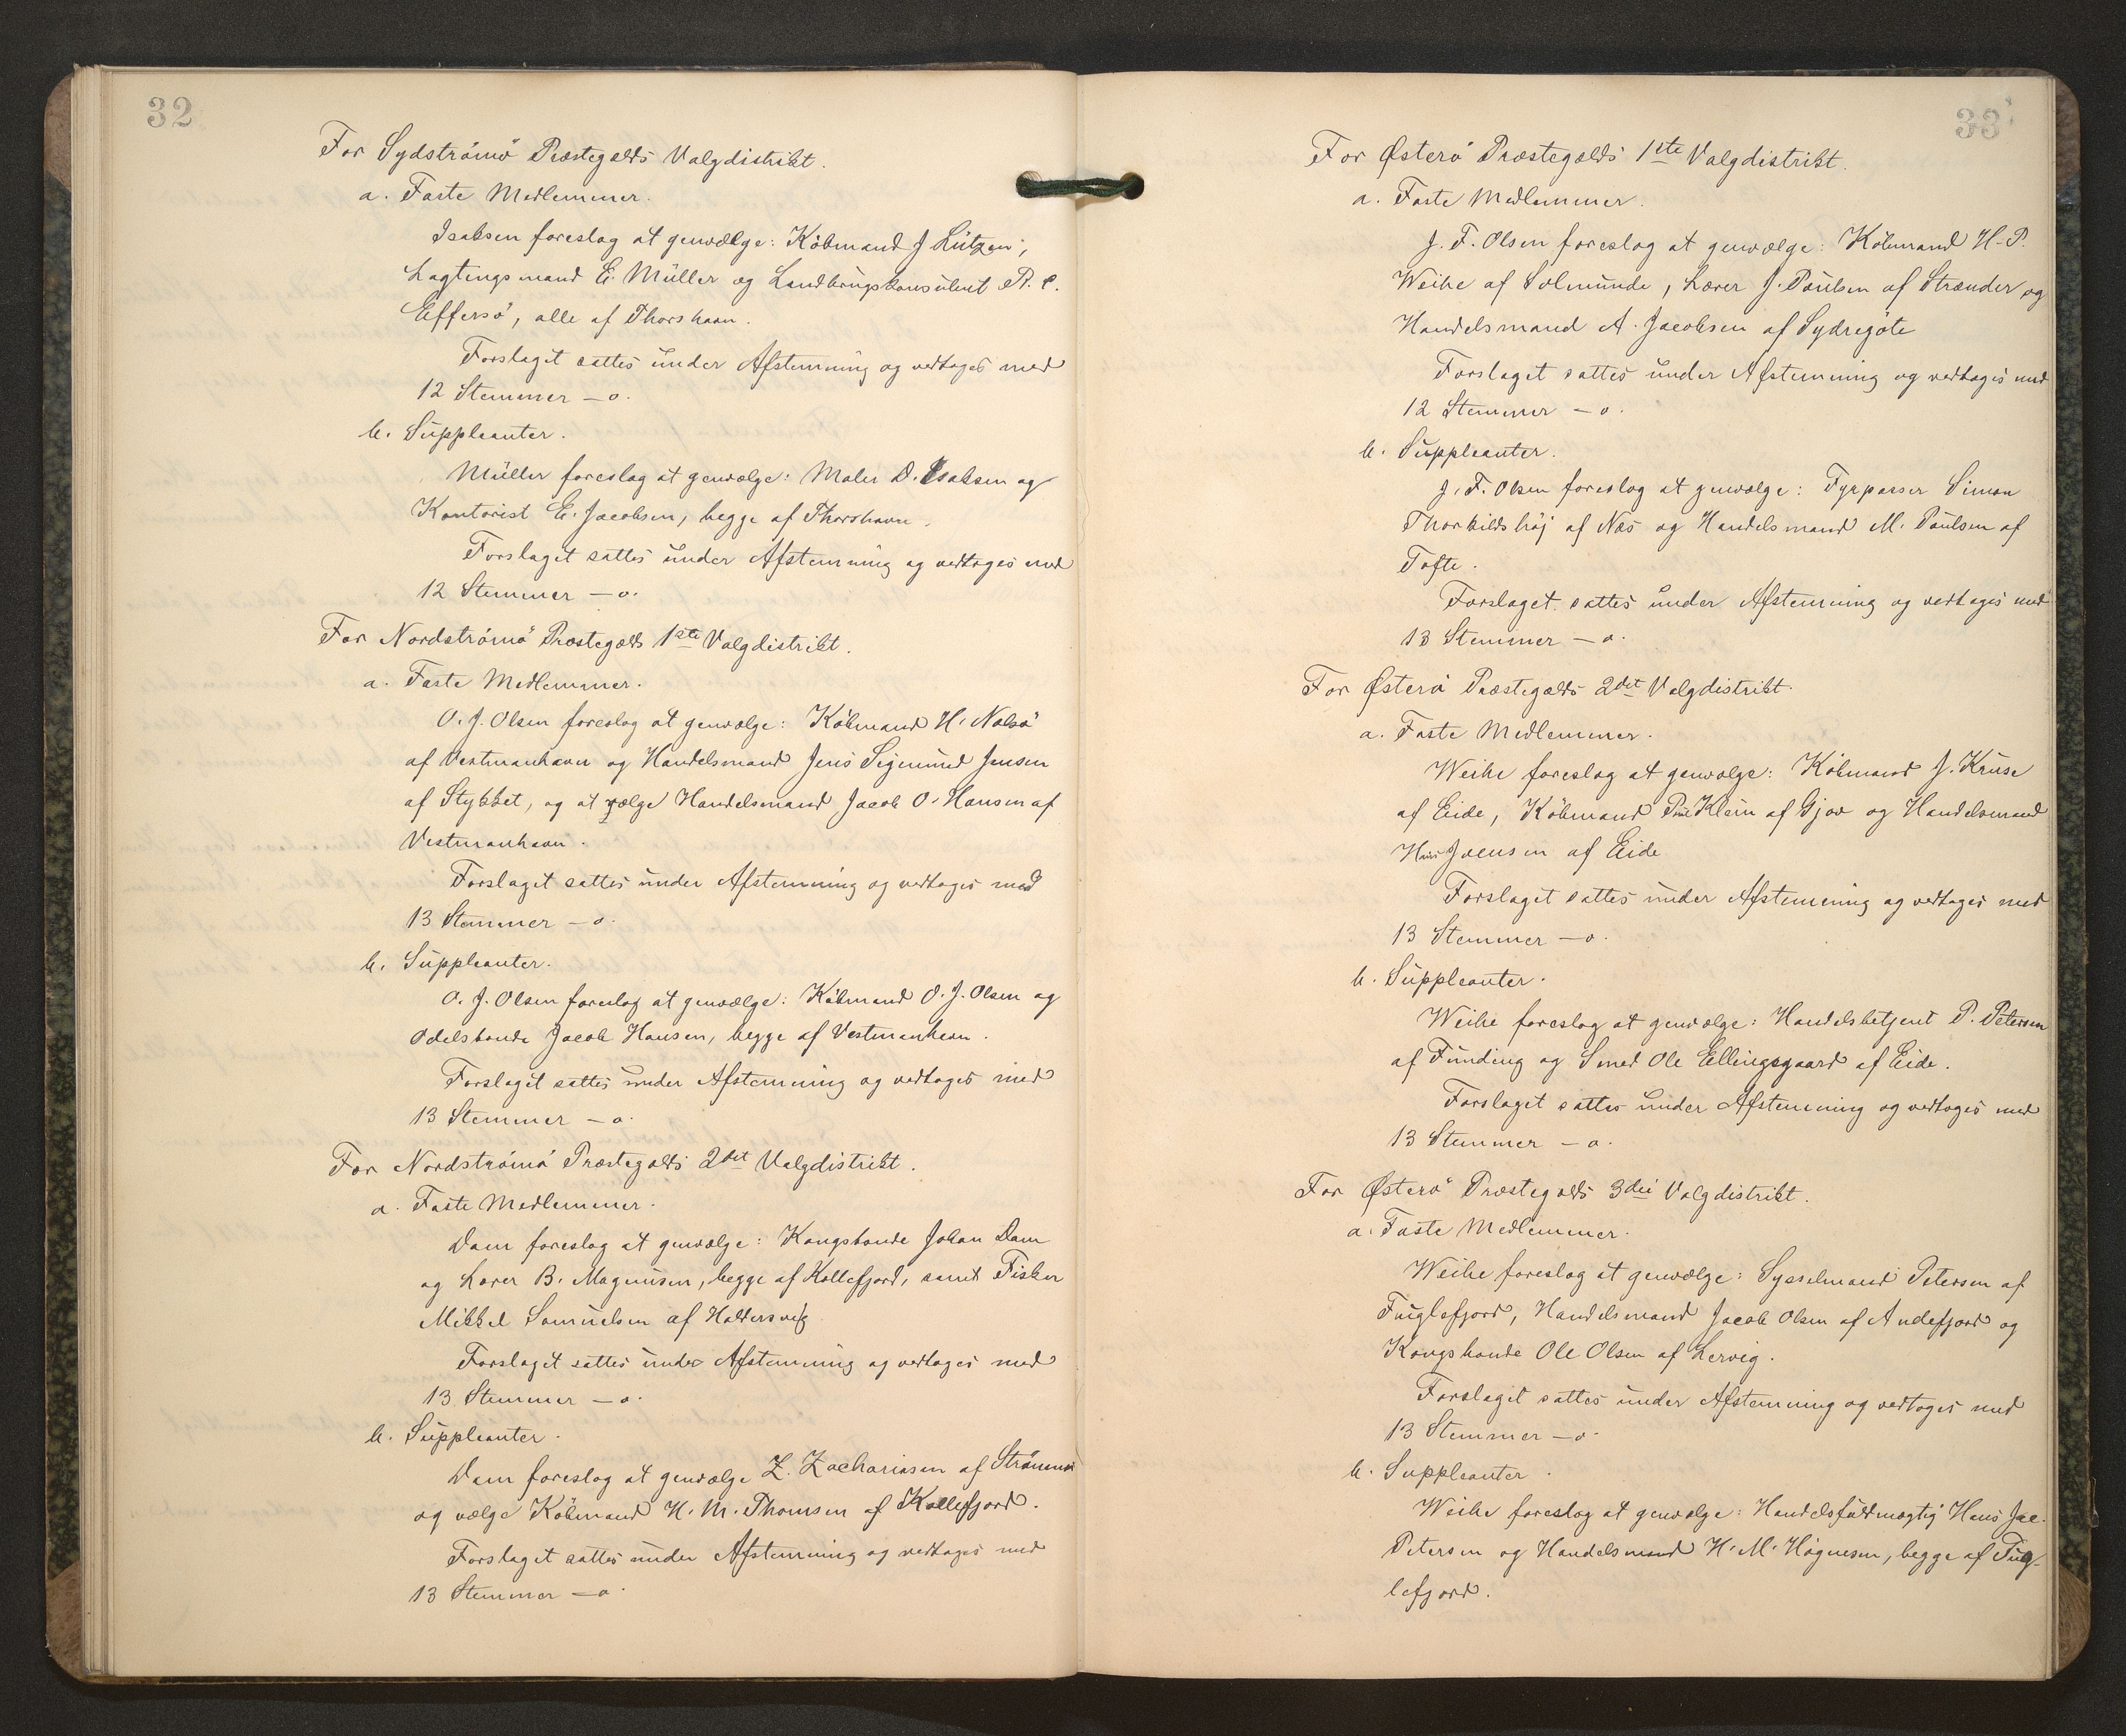 32
For Sydströmö Præstegælds Valgdistrikt.
a. Faste Medlemmer.
Isaksen foreslog at genvælge: Köbmand J. Lützen,
Lagtingsmand E. Müller og Landbrugskonsulent R. C.
Effersö, alle af Thorshavn.
Forslaget sattes under Afstemning og vedtoges med
12 Stemmer – o.
b. Suppleanter.
Müller foreslog at genvælge: Maler D. Isaksen og
Kontorist E. Jacobsen, begge af Thorshavn.
Forslaget sattes under Afstemning og vedtoges med
12 Stemmer – o.
For Nordströmö Præstegælds 1ste Valgdistrikt.
a. Faste Medlemmer.
O. J. Olsen foreslog at genvælge: Köbmand H. Nolsö
af Vestmanhavn og Handelsmand Jens Sigmund Jensen
af Stykket, og at vælge Handelsmand Jacob O. Hansen af
Vestmanhavn.
Forslaget sattes under Afstemning og vedtoges med
13 Stemmer – o.
b. Suppleanter.
O. J. Olsen foreslog at genvælge: Köbmand O. J. Olsen og
Odelsbonde Jacob Hansen, begge af Vestmanhavn.
Forslaget sattes under Afstemning og vedtoges med
13 Stemmer – o.
For Nordströmö Præstegælds 2det Valgdistrikt.
a. Faste Medlemmer.
Dam foreslog at genvælge: Kongsbonde Johan Dam
og Lærer B. Magnusen, begge af Kollefjord, samt Fisker
Mikkel Samuelsen af Haldersvig
Forslaget sattes under Afstemning og vedtoges med
13 Stemmer – o.
b. Suppleanter.
Dam foreslog at genvælge Z. Zachariasen af Strömnæs
og vælge Köbmand H. M. Thomsen af Kollefjord.
Forslaget sattes under Afstemning og vedtoges med
13 Stemmer – o.
33
For Østerö Præstegælds 1ste Valgdistrikt.
a. Faste Medlemmer.
J. F. Olsen foreslog at genvælge: Köbmand H. P.
Weihe af Solmunde, Lærer J. Poulsen af Strænder og
Handelsmand A. Jacobsen af Sydregöte
Forslaget sattes under Afstemning og vedtoges med
12 Stemmer – o.
b. Suppleanter.
J. F. Olsen foreslog at genvælge: Fyrpasser Simon
Thorkildshöj af Næs og Handelsmand M. Poulsen af
Tofte.
Forslaget sattes under Afstemning og vedtoges med
13 Stemmer – o.
For Østerö Præstegælds 2det Valgdistrikt.
a. Faste Medlemmer.
Weihe foreslog at genvælge: Köbmand J. Kruse
af Eide, Köbmand Poul Klein af Gjov og Handelsmand
Hans Joensen af Eide
Forslaget sattes under Afstemning og vedtoges med
13 Stemmer – o.
b. Suppleanter.
Weihe foreslog at genvælge: Handelsbetjent P. Petersen
af Funding og Smed Ole Ellingsgaard af Eide.
Forslaget sattes under Afstemning og vedtoges med
13 Stemmer – o.
For Østerö Præstegælds 3die Valgdistrikt.
a. Faste Medlemmer.
Weihe foreslog at genvælge: Sysselmand Petersen af
Fuglefjord, Handelsmand Jacob Olsen af Andefjord og
Kongsbonde Ole Olsen af Lervig.
Forslaget sattes under Afstemning og vedtoges med
13 Stemmer – o.
b. Suppleanter.
Weihe foreslog at genvælge: Handelsfuldmægtig Hans Jac.
Petersen og Handelsmand H. M. Högnesen, begge af Fug-
lefjord.